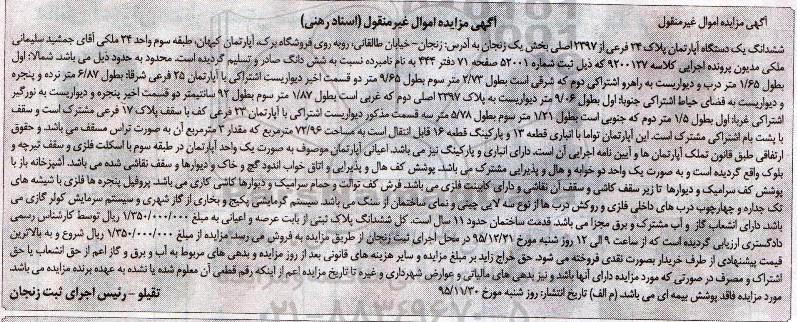 آگهی مزایده اموال غیر منقول
آگهی مزایده اموال غیر منقول (اسناد رهنی)
ششدانگ یک دستگاه آپارتمان پلاک ۲۴ فرعی از ۲۳۹۷ اصلی بخش یک زنجان به آدرس: زنجان- خیابان طالقانی، روبه روی فروشگاه برک، آپارتمان کیهان، طبقه سوم واحد ۲۴ ملکی آقای جمشید سلیمانی
ملکی مدیون پرونده اجرایی کلاسه ۹۲۰۰۱۲۷ که ذیل ثبت شماره ۵۲۰۰۱ صفحه ۷۱ دفتر ۳۴۴ به نام نامبرده نسبت به شش دانگ صادر و تسلیم گردیده است. محدود به حدود ذیل می باشد: شمالا: اول
بطول ۱/۶۵ متر درب و دیواریست به راهرو اشتراکی دوم که شرقی است بطول ۲/۷۳ متر سوم بطول ۹/۶۵ متر دو قسمت اخیر دیواریست اشتراکی با آپارتمان ۲۵ فرعی شرقا: بطول ۶/۸۷ متر نرده و پنجره
و دیواریست به فضای حیاط اشتراکی جنوبا: اول بطول ۹/۰۶ متر دیواریست به پلاک ۲۳۹۷ اصلی دوم که غربی است بطول ۱/۸۷ متر سوم بطول ۹۲ سانتیمتر دو قسمت اخیر پنجره و دیواریست به نورگیر
اشتراکی غربا: اول بطول ۱/۵ متر دوم که جنوبی است بطول ۱/۲۱ متر سوم بطول ۵/۷۸ متر سه قسمت مذکور دیواریست اشتراکی با آپارتمان ۲۳ فرعی کف با سقف پلاک ۱۷ فرعی مشترک است و سقف
با پشت بام اشتراکی مشترک است. این آپارتمان تواما با انباری قطعه ۱۳ و پارکینگ قطعه ۱۶ قابل انتقال است به مساحت ۷۲/۹۶ مترمربع که مقدار ۳ مترمربع آن به صورت تراس مسقف می باشد. و حقوق
ارتفاقی طبق قانون تملک آپارتمان ها و آیین نامه اجرایی آن است، دارای انباری و پارکینگ نیز می باشد. اعیانی آپارتمان موصوف به صورت یک واحد آپارتمان در طبقه سوم با اسکلت فلزی و سقف تیرچه و
بلوک واقع گردیده است و به صورت یک واحد دو خوابه و هال و پذیرایی مشترک می باشد. پوشش کف هال و پذیرایی و اتاق خواب اندود گچ و خاک و دیوارها و سقف نقاشی شده می باشد. آشپزخانه باز با
پوشش کف سرامیک و دیوارها تا زیر سقف کاشی و سقف آن نقاشی و دارای کابینت فلزی می باشد. فرش کف توالت و حمام سرامیک و دیوارها کاشی کاری می باشد. پروفیل پنجره ها فلزی با شیشه های
تک جداره و چهارچوب درب های داخلی فلزی و روکش درب ها از نوع سه لایی چینی و نمای ساختمان از سنگ می باشد. سیستم گرمایشی پکیج و بخاری از گاز شهری و سیستم سرمایش کولر گازی می
باشد. دارای انشعاب گاز و آب مشترک و برق مجزا می باشد. قدمت ساختمان حدود ۱۱ سال است. کل ششدانگ پلاک ثبتی از بابت عرصه و اعیانی به مبلغ ۱/۳۵۰/۰۰۰/۰۰۰ ریال توسط کارشناس رسمی
دادگستری ارزیابی گردیده است که از ساعت ۹ الی ۱۲ روز شنبه مورخ ۹۵/۱۲/۲۱ در محل اجرای ثبت زنجان از طریق مزایده به فروش می رسد. مزایده از مبلغ ۱/۳۵۰/۰۰۰/۰۰۰ ریال شروع و به بالاترین
قیمت پیشنهادی از طرف خریدار بصورت نقدی فروخته می شود. حق حراج زاید بر مبلغ مزایده و سایر هزینه های قانونی بعد از روز مزایده و بدهی های مربوط به آب و برق و گاز اعم از حق انشعاب یا حق
اشتراک و مصرف در صورتی که مورد مزایده دارای آنها باشد و نیز بدهی های مالیاتی و عوارض شهرداری و غیره تا تاریخ مزایده اعم از اینکه رقم قطعی آن معلوم شده یا نشده به عهده برنده مزایده می باشد.
مورد مزایده فاقد پوشش بیمه ای می باشد. (م الف) تاریخ انتشار: روز شنبه مورخ ۹۵/۱۱/۳۰
تقیلو - رئیس اجرای ثبت زنجان
۰۲۱-۸۸۳۴۹۶۷۰-۵